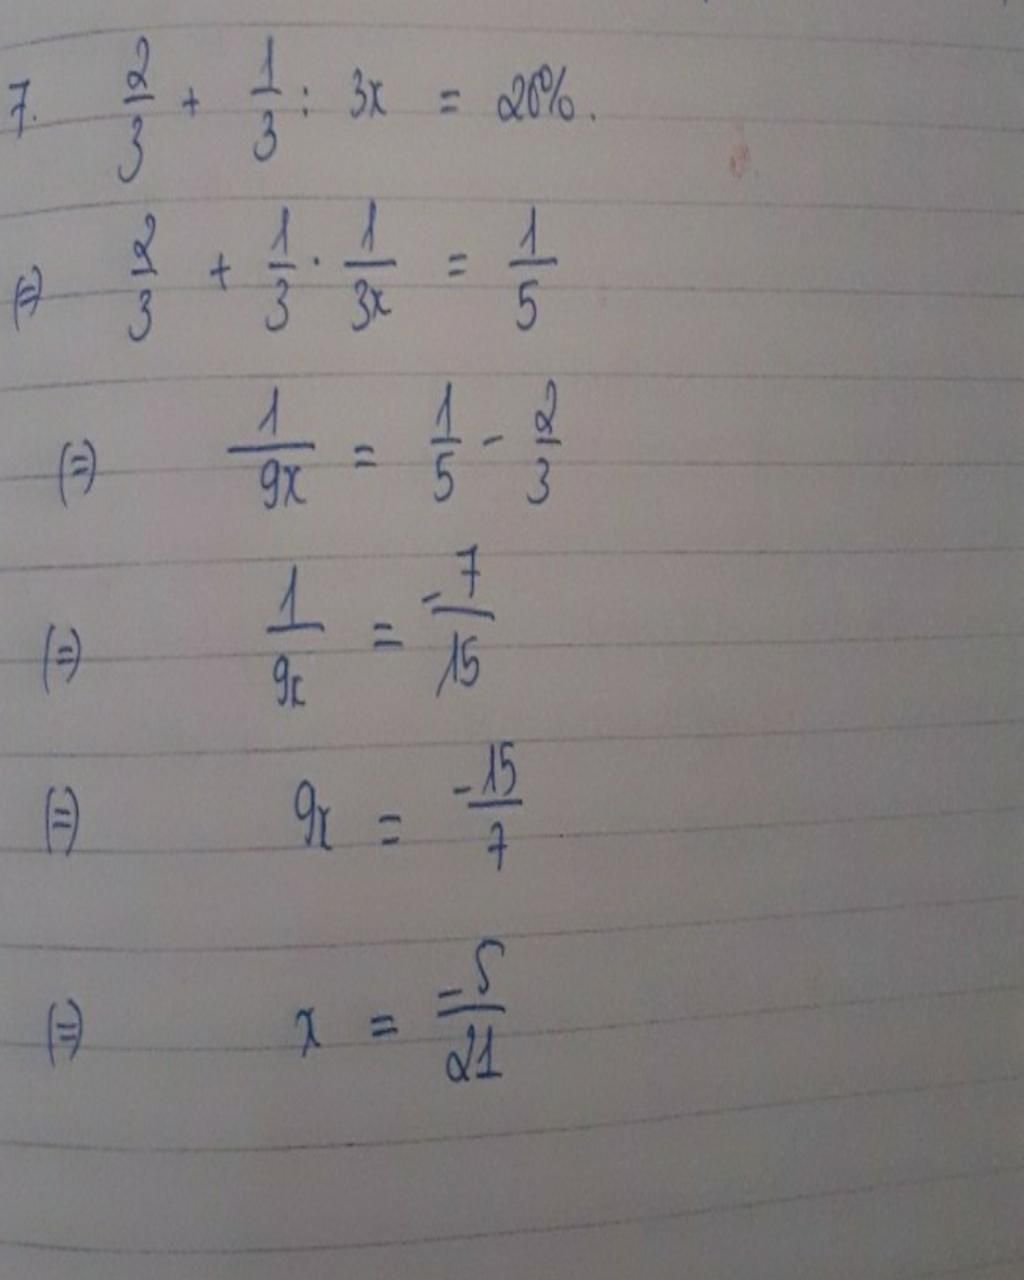 7. 2/3 + 1/3 : 3x = 20%.
(=) 2/3 + 1/3 · 1/3x = 1/5
(=) 1/9x = 1/5 - 2/3
(=) 1/9x = -7/15
(=) 9x = -15/7
(=) x = -5/21